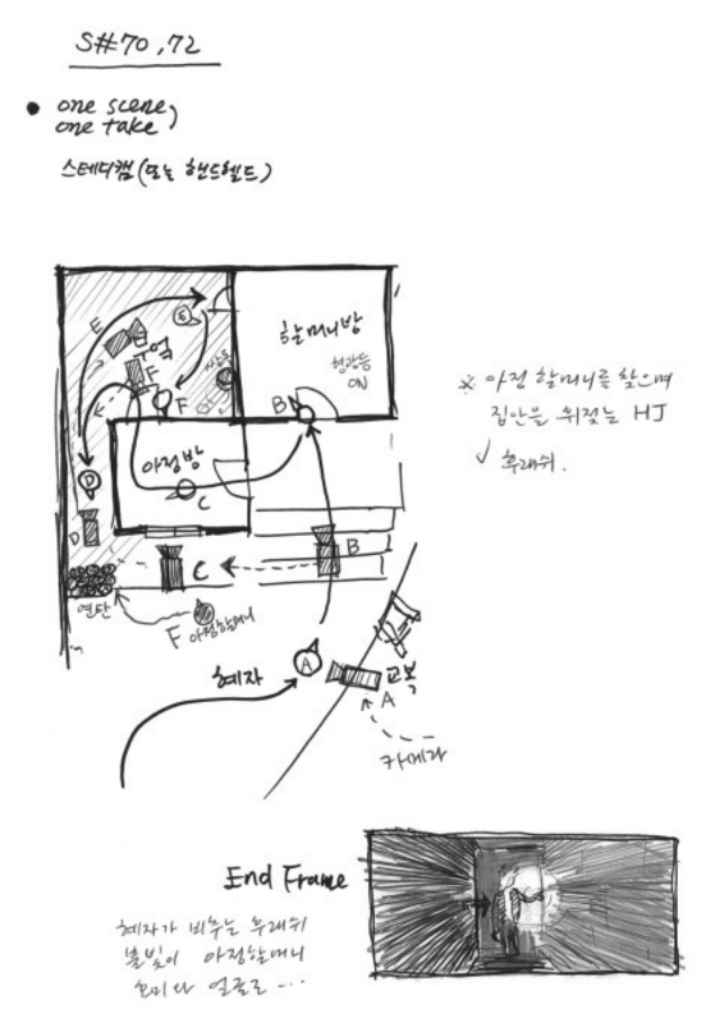 S#70, 72
one scene,
one take
스테디캠(또는 핸드헬드)
E
E
부엌
F
F
쌀독
할머니방
형광등
ON
B
아정방
C
D
D
B
C
연탄
F 아정할머니
혜자
A
교복
A
카메라
※ 아정 할머니를 찾으며
집안을 뒤젖는 HJ
✓ 후래쉬.
End Frame
혜자가 비추는 후래쉬
불빛이 아정할머니
얼굴로 ...